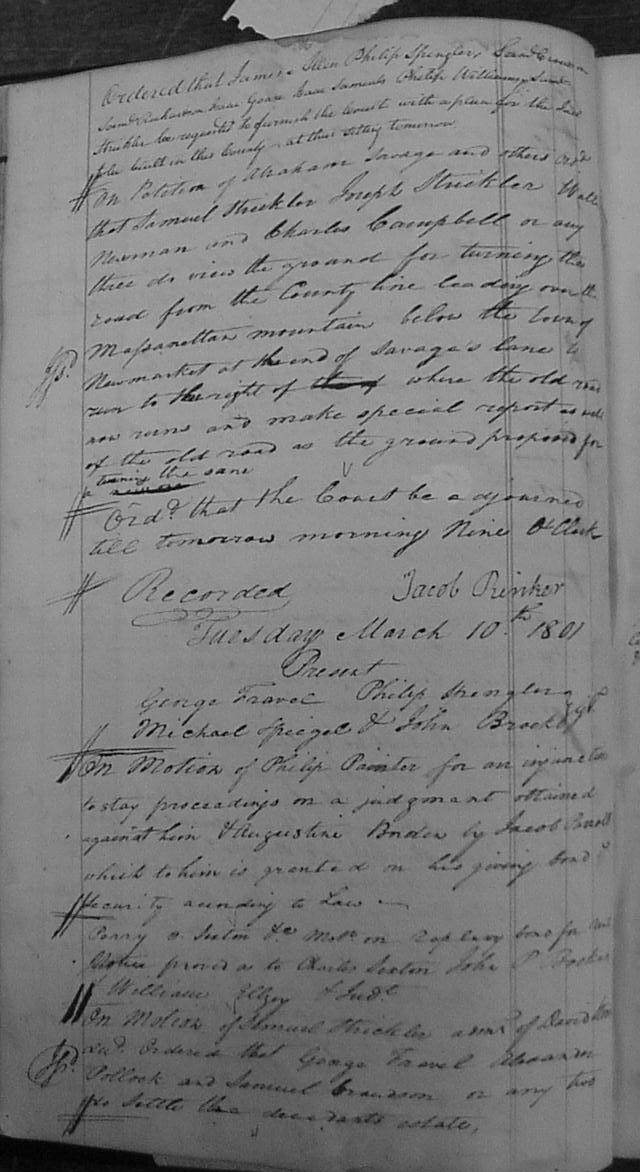 Ordered that James Allen Philip Spengler,
Saml Richardson Isaac Goare Isaac Samuels Philip Williams & Saml
Strickler be requested to furnish the Court with a plan for the
to be built in this County at this sitting tomorrow
On Petition of Abraham Savage and others Ord
that Samuel Strickler Joseph Strickler Walter
Newman and Charles Campbell or any
three do view the ground for turning the
road from the County line leading over the
Massanettan mountain below the town of
Newmarket at the end of Savage's lane to
run to the right of where the old road
now runs and make special report as well
of the old road as the ground proposed for
turning the same
Ord.d that the Court be adjourned
till tomorrow morning Nine O Clock
Recorded Jacob Rinker
Tuesday March 10th 1801
Present
George Fravel Philip Spengler
Michael Speigel & John Brock
On Motion of Philip Painter for an injunction
to stay proceedings on a judgmant obtained
against him & Augustine Borden by Jacob
which to him is granted on his giving bond &
Security according to Law
Penry v Sexton &c Mot. on replevy bond for
Notice proved as to Charles Sexton John P Booker
& William Elzey & Judt.
On Motion of Samuel Strickler admr of David
decd. Ordered that George Fravel Alexander
Pollock and Samuel or any two
do Settle the decedants estate,